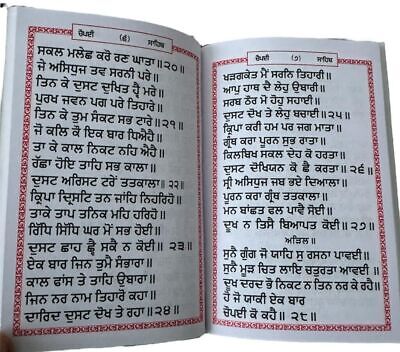 ਚੌਪਈ (੬) ਸਾਹਿਬ
ਸਕਲ ਮਲੇਛ ਕਰੋ ਰਣ ਘਾਤਾ॥੨੦॥
ਜੋ ਅਸਿਧੁਜ ਤਵ ਸਰਨੀ ਪਰੇ॥
ਤਿਨ ਕੇ ਦੁਸਟ ਦੁਖਿਤ ਹ੍ਵੈ ਮਰੇ॥
ਪੁਰਖ ਜਵਨ ਪਗ ਪਰੇ ਤਿਹਾਰੇ॥
ਤਿਨ ਕੇ ਤੁਮ ਸੰਕਟ ਸਭ ਟਾਰੇ॥੨੧॥
ਜੋ ਕਲਿ ਕੋ ਇਕ ਬਾਰ ਧਿਐਹੈ॥
ਤਾ ਕੇ ਕਾਲ ਨਿਕਟ ਨਹਿ ਐਹੈ॥
ਰੱਛਾ ਹੋਇ ਤਾਹਿ ਸਭ ਕਾਲਾ॥
ਦੁਸਟ ਅਰਿਸਟ ਟਰੇਂ ਤਤਕਾਲਾ॥੨੨॥
ਕ੍ਰਿਪਾ ਦ੍ਰਿਸਟਿ ਤਨ ਜਾਂਹਿ ਨਿਹਰਿਹੋ॥
ਤਾਕੇ ਤਾਪ ਤਨਕ ਮਹਿ ਹਰਿਹੋ॥
ਰਿੱਧਿ ਸਿੱਧਿ ਘਰ ਮੋ ਸਭ ਹੋਈ॥
ਦੁਸਟ ਛਾਹ ਛ੍ਵੈ ਸਕੈ ਨ ਕੋਈ॥ ੨੩॥
ਏਕ ਬਾਰ ਜਿਨ ਤੁਮੈ ਸੰਭਾਰਾ॥
ਕਾਲ ਫਾਂਸ ਤੇ ਤਾਹਿ ਉਬਾਰਾ॥
ਜਿਨ ਨਰ ਨਾਮ ਤਿਹਾਰੋ ਕਹਾ॥
ਦਾਰਿਦ ਦੁਸਟ ਦੋਖ ਤੇ ਰਹਾ॥੨੪॥
ਚੌਪਈ (੭) ਸਾਹਿਬ
ਖੜਗਕੇਤ ਮੈਂ ਸਰਨਿ ਤਿਹਾਰੀ॥
ਆਪੁ ਹਾਥ ਦੈ ਲੇਹੁ ਉਬਾਰੀ॥
ਸਰਬ ਠੌਰ ਮੋ ਹੋਹੁ ਸਹਾਈ॥
ਦੁਸਟ ਦੋਖ ਤੇ ਲੇਹੁ ਬਚਾਈ॥੨੫॥
ਕ੍ਰਿਪਾ ਕਰੀ ਹਮ ਪਰ ਜਗ ਮਾਤਾ॥
ਗ੍ਰੰਥ ਕਰਾ ਪੂਰਨ ਸੁਭ ਰਾਤਾ॥
ਕਿਲਬਿਖ ਸਕਲ ਦੇਹ ਕੋ ਹਰਤਾ॥
ਦੁਸਟ ਦੋਖਿਯਨ ਕੋ ਛੈ ਕਰਤਾ॥੨੬॥
ਸ੍ਰੀ ਅਸਿਧੁਜ ਜਬ ਭਏ ਦਿਆਲਾ॥
ਪੂਰਨ ਕਰਾ ਗ੍ਰੰਥ ਤਤਕਾਲਾ॥
ਮਨ ਬਾਂਛਤ ਫਲ ਪਾਵੈ ਸੋਈ॥
ਦੂਖ ਨ ਤਿਸੈ ਬਿਆਪਤ ਕੋਈ॥੨੭॥
ਅੜਿਲ॥
ਸੁਨੈ ਗੁੰਗ ਜੋ ਯਾਹਿ ਸੁ ਰਸਨਾ ਪਾਵਈ॥
ਸੁਨੈ ਮੂੜ ਚਿਤ ਲਾਇ ਚਤੁਰਤਾ ਆਵਈ॥
ਦੂਖ ਦਰਦ ਭੌ ਨਿਕਟ ਨ ਤਿਨ ਨਰ ਕੇ ਰਹੈ॥
ਹੋ ਜੋ ਯਾਕੀ ਏਕ ਬਾਰ
ਚੌਪਈ ਕੋ ਕਹੈ॥ ੨੮॥